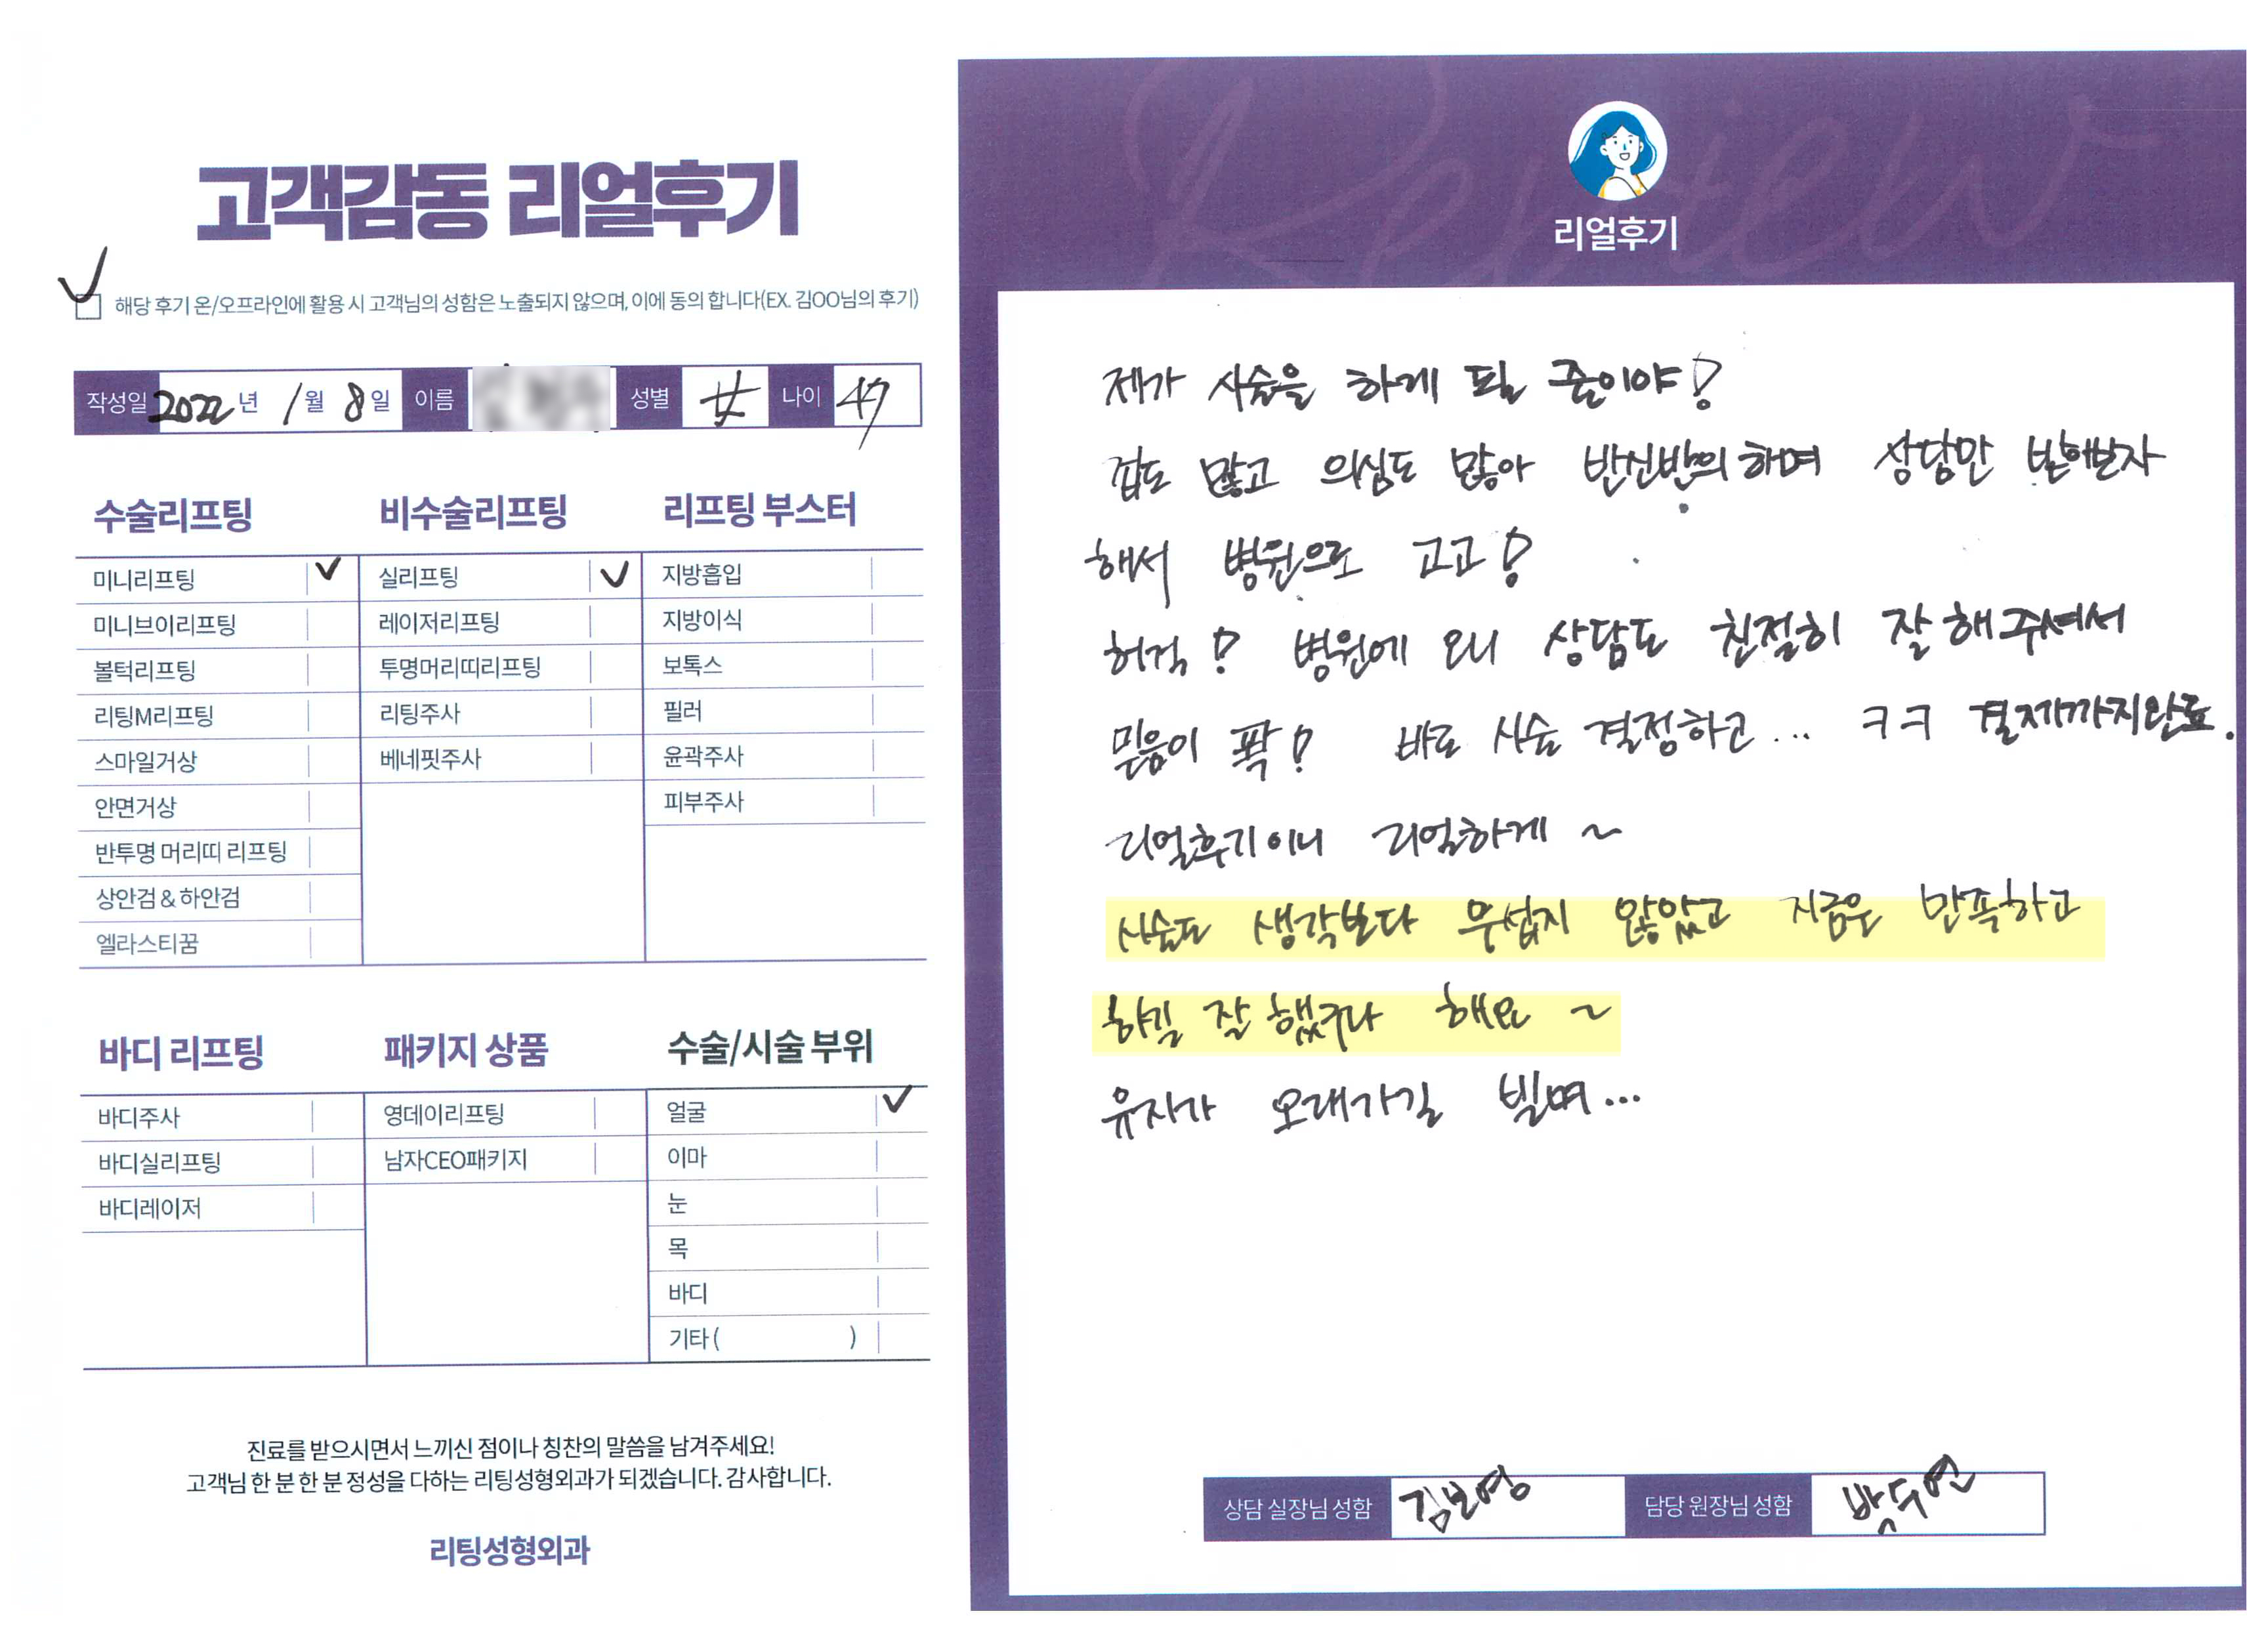 고객감동 리얼후기
해당 후기 온/오프라인에 활용 시 고객님의 성함은 노출되지 않으며, 이에 동의 합니다(EX. 김OO님의 후기)
작성일 2022년 1월 8일 이름 성별 女 나이 47
수술리프팅
미니리프팅
미니브이리프팅
볼턱리프팅
리팅M리프팅
스마일거상
안면거상
반투명 머리띠 리프팅
상안검 & 하안검
엘라스티꿈
비수술리프팅
실리프팅
레이저리프팅
투명머리띠리프팅
리팅주사
베네핏주사
리프팅 부스터
지방흡입
지방이식
보톡스
필러
윤곽주사
피부주사
바디 리프팅
바디주사
바디실리프팅
바디레이저
패키지 상품
영데이리프팅
남자CEO패키지
수술/시술 부위
얼굴
이마
눈
목
바디
기타 ( )
진료를 받으시면서 느끼신 점이나 칭찬의 말씀을 남겨주세요!
고객님 한 분 한 분 정성을 다하는 리팅성형외과가 되겠습니다. 감사합니다.
리팅성형외과
Review
리얼후기
제가 시술을 하게 될 줄이야!
겁도 많고 의심도 많아 반신반의하며 상담만 받아보자
해서 병원으로 고고!
허걱! 병원에 오니 상담도 친절히 잘 해주셔서
믿음이 팍! 바로 시술 결정하고... ㅋㅋ 결제까지완료.
리얼후기이니 리얼하게 ~
시술도 생각보다 무섭지 않았고 지금은 만족하고
하길 잘 했구나 해요 ~
유지가 오래가길 빌며...
상담 실장님 성함 김보영 담당 원장님 성함 박수연